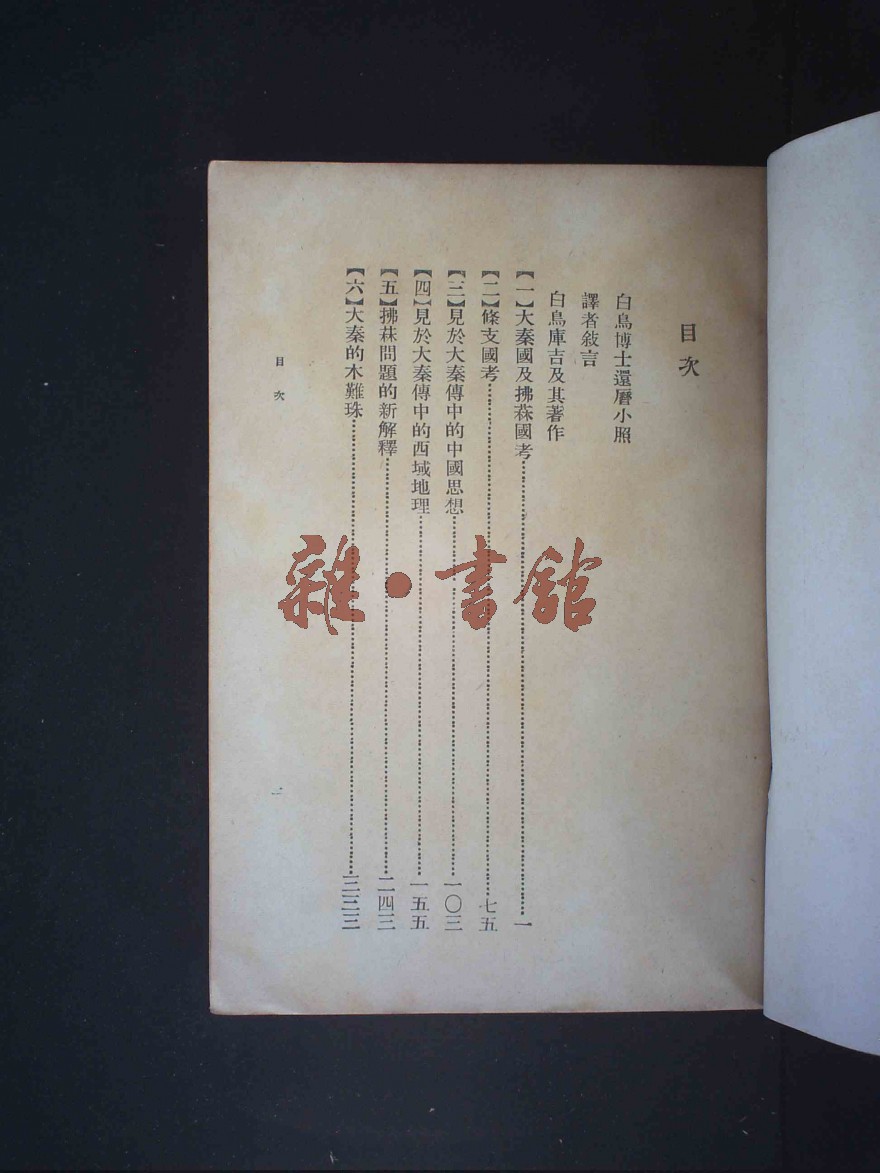 目次
白鳥博士還曆小照
譯者敍言
白鳥庫吉及其著作
【一】大秦國及拂菻國考⋯⋯⋯⋯一
【二】條支國考⋯⋯⋯⋯七五
【三】見於大秦傳中的中國思想⋯⋯⋯⋯一〇三
【四】見於大秦傳中的西域地理⋯⋯⋯⋯一五五
【五】拂菻問題的新解釋⋯⋯⋯⋯二四三
【六】大秦的木難珠⋯⋯⋯⋯三三三
目次
雜·書館